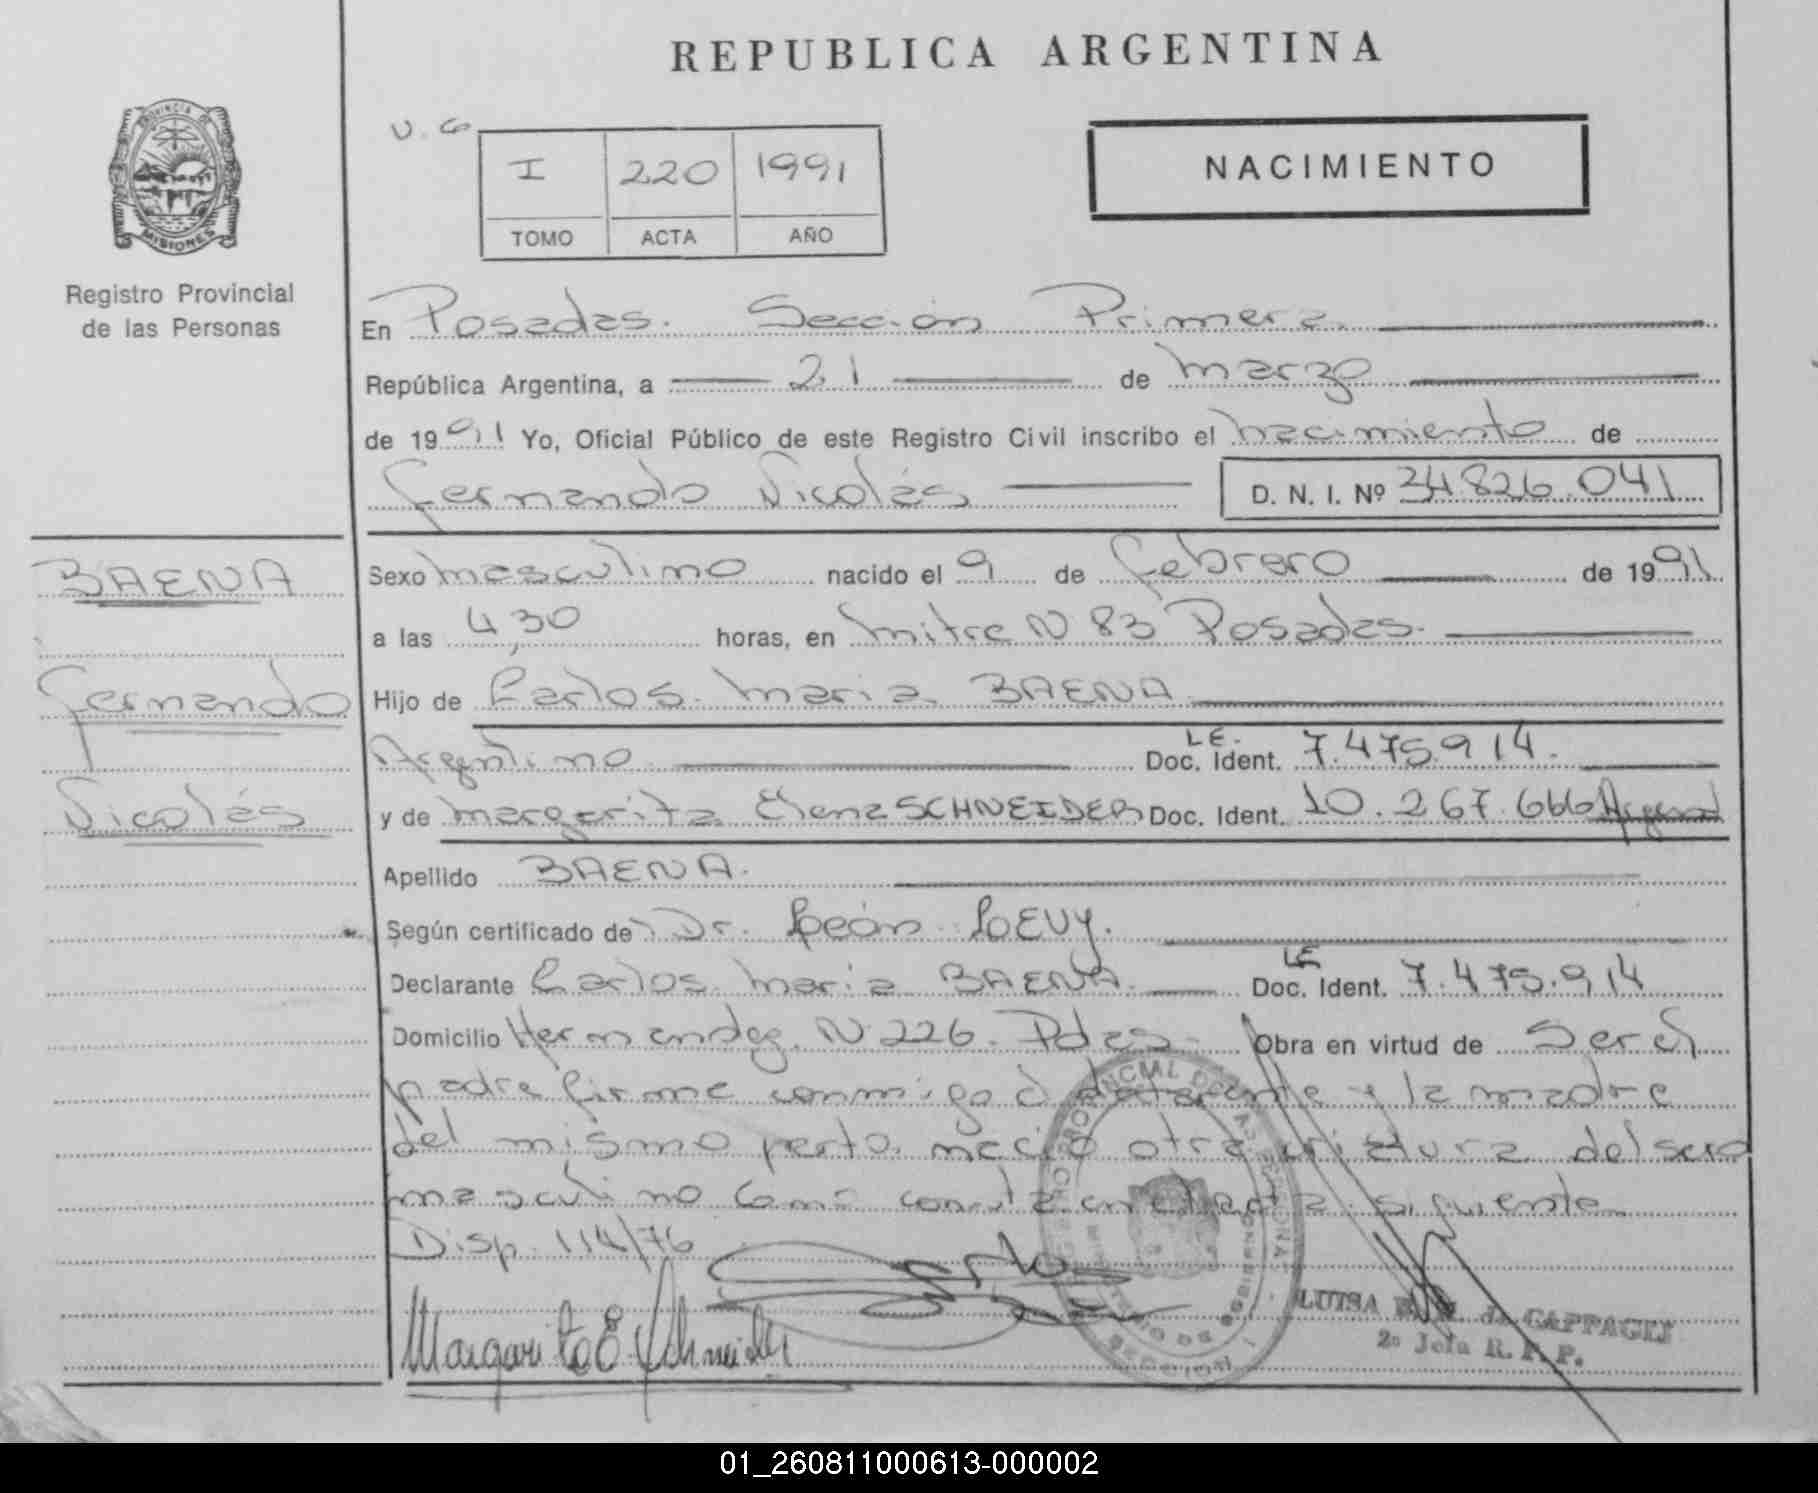 REPUBLICA ARGENTINA
PROVINCIA DE
MISIONES
Registro Provincial
de las Personas
I 220 1991
TOMO ACTA AÑO
NACIMIENTO
En Posadas. Sección Primera.
República Argentina, a 21 de marzo
de 1991 Yo, Oficial Público de este Registro Civil inscribo el nacimiento de
Fernando Nicolás D. N. I. Nº 34.826.041
BAENA
Fernando
Nicolás
Sexo masculino nacido el 9 de febrero de 1991
a las 4,30 horas, en mitre N 83 Posadas.
Hijo de Carlos María BAENA
Argentino L.E. Doc. Ident. 7.475.914.
y de margarita Elena SCHNEIDER Doc. Ident. 10.267.666
Apellido BAENA.
Según certificado de Dr. León LOEVY.
Declarante Carlos María BAENA. LE Doc. Ident. 7.475.914
Domicilio Hernandez N 226. Pdas. Obra en virtud de Ser el
padre firme conmigo el declarante y la madre
del mismo parto nació otra criatura del sexo
masculino como consta en el acta siguiente
Disp. 114/76
Margarita E. Schneider
LUISA de CAPPAGLI
2ª Jefa R. P. P.
01_260811000613-000002